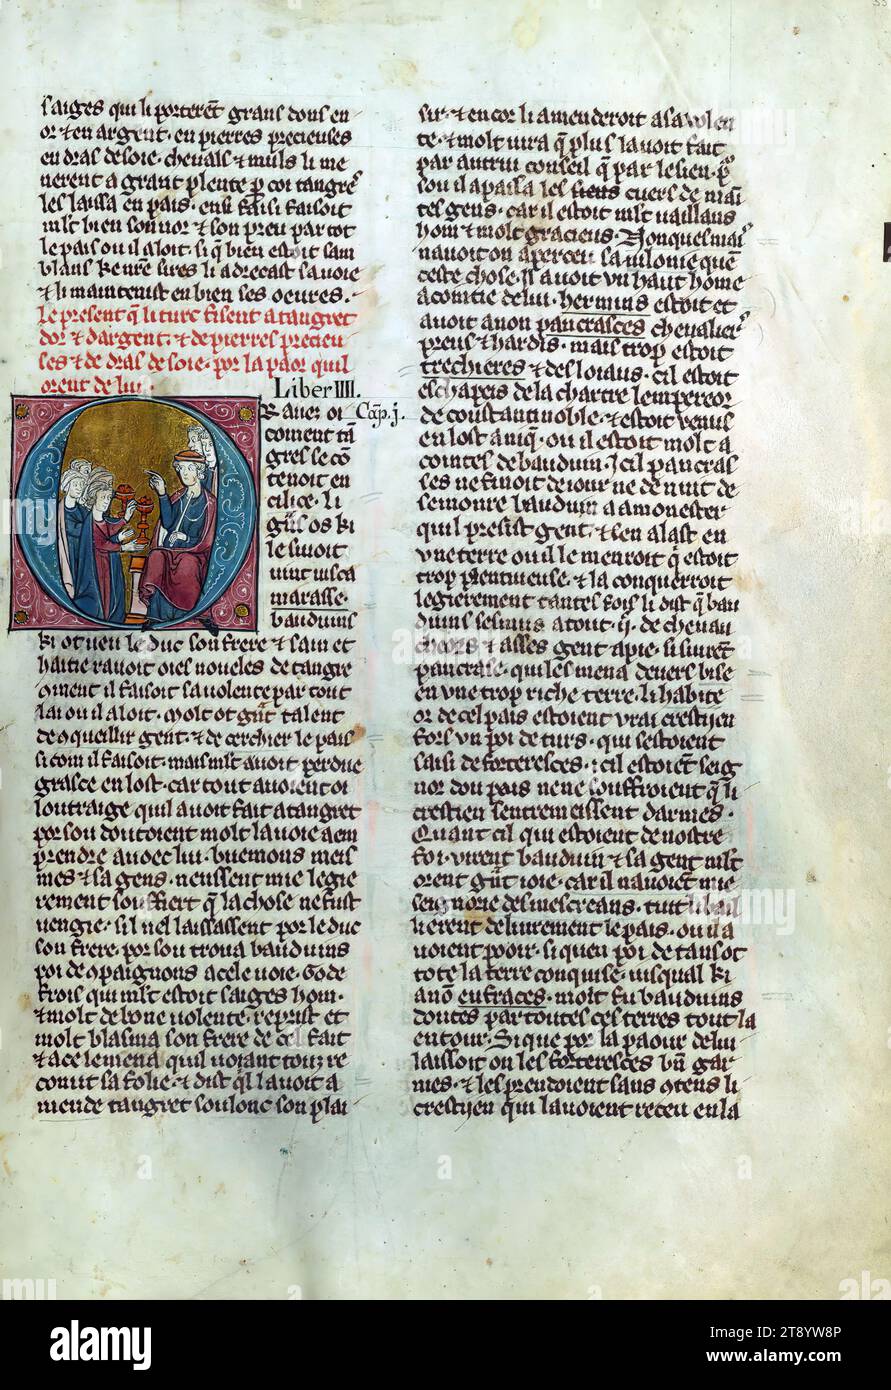 saiges qui li porterẽt grans dons en
or ⁊ en argent· en pierres precieuses
en dras de soie· chevals ⁊ muls li me
nerent a grant plente p̱ coi tangrẽ
les laissa en pais· ensi faisi faisoit
ml't bien son nor ⁊ son preu par tot
le pais ou il aloit· si q̃ bien estoit sam
blans ke nr̃e sires li adrecast sa voie
⁊ li maintenist en bien ses oeures·
Le present q̃ li turc fisent a tangret
dor ⁊ dargent· ⁊ de pierres precieu
ses ⁊ de dras de soie· por la paor quil
orent de lui·
Liber IIII.
Cap̃. j.
aver oi
coment tã
gres se cõ
tenoit en
cilice· li
gñs os ki
le sivoit
vint iusca
marasse·
bauduins
ki ot veu le duc son frere ⁊ sain et
haitie· avoit oies noueles de tangre
coment il faisoit sa volente par tout
la ou il aloit· Molt ot gñt talent
de ꝯqueillir gent· ⁊ de cerchier le païs
si com il faisoit· mais ml't avoit perdue
grasce en lost· car tout avoient oi
loutraige quil avoit fait a tangret
por sou doutoient molt la voie a em
prendre avoec lui· buemons meis
mes ⁊ sa gens· neussent mie legie
rement souffiert q̃ la chose ne fust
vengie· sil nel laissassent por le duc
son frere· por sou trova bauduins
poi de ꝯpaignons a cele voie· Gode
frois qui ml't estoit saiges hom·
⁊ molt de bone volente· reprist et
molt blasma son frere de cel fait
⁊ a ce le mena quil voiant touz re
conut sa folie· ⁊ dist q̃l lavoit a
mende tangret soulonc son plai
sir· ⁊ encor li amenderoit a sa volen
te· ⁊ molt iura q̃ plus lavoit fait
par autrui conseil q̃ par le sien· p̱
sou il apaissa les siens cuers de mai
tes gens· car il estoit ml't vaillans
hom ⁊ molt graciens· Donques mais
navoit on aperceu sa vilonie q̃ en
ceste chose· Il avoit vn haut home
acointie de lui· hermins estoit et
avoit a non pancrasces chevaliers
preus ⁊ hardis· mais trop estoit
trechieres ⁊ desloiaus· cil estoit
eschapeis de la chartre lempereor
de constantinoble· ⁊ estoit venus
en lost a niq̃· ou il estoit molt a
cointes de bauduin· Icil pancras
ses ne finoit de iour ne de nuit de
semonre bauduin ⁊ amonester
quil presist gent· ⁊ sen alast en
vne terre ou il le menroit q̃ estoit
trop plentiueuse· ⁊ la conquerroit
legierement· tantes fois li dist q̃ bau
duins se sinus atout .ij. de chevau
cheors ⁊ asses gent a pie· si siuret
pancrase· qui les mena devers bise
en vne trop riche terre· li habite
or de cel pais estoient vrai crestyen
fors vn poi de turs· qui sestoient
saisi de forteresces· ⁊ cil estoiet seig
nor dou pais ne ne souffroient q̃ li
crestien sentremeissent darmes·
Quant cil qui estoient de nostre
foi· virent bauduin ⁊ sa gent ml't
orent gñt ioie· car il navoiẽt mie
seignorie des mescreans· tuit li bail
lierent delivrement le pais· ou il a
voient pooir· si que u poi de tans ot
tote la terre conquise· iusqual ki
a nõ eufraces· molt fu bauduins
doutes par toutes ces terres tout la
entour· Si que por la paour de lui
laissoit on les forteresces bñ gar
nies· ⁊ les prendoient sans ꝯtens li
crestyen qui lavoient receu en la
alamy
Image ID: 2T8YW8P
www.alamy.com